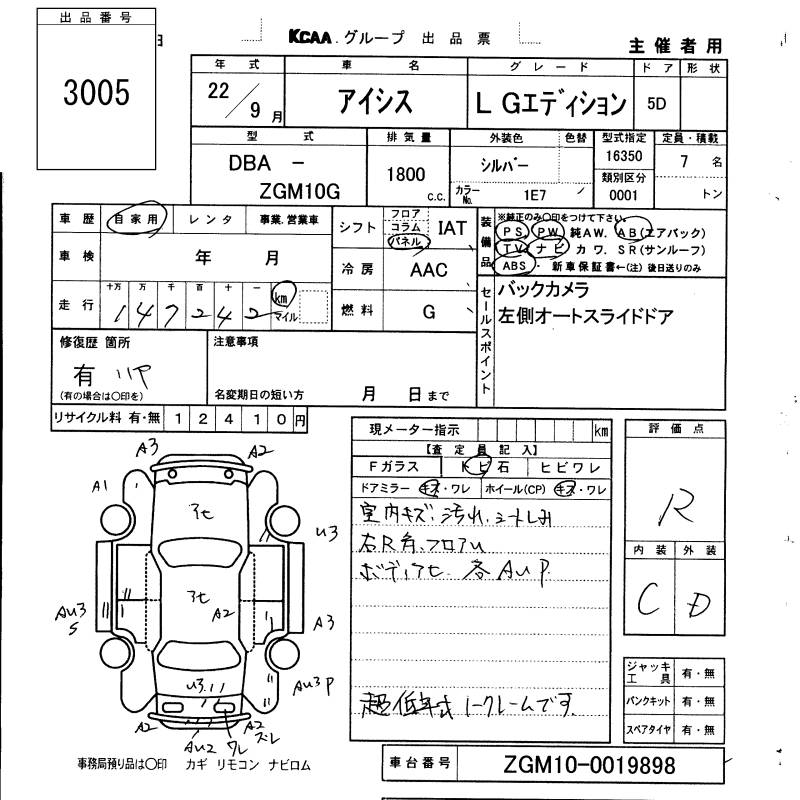 出品番号
3005
KCAA.グループ 出品票
主催者用
年式 車名 グレード ドア 形状
22/9月 アイシス L Gエディション 5D
型式 排気量 外装色 色替 型式指定 定員・積載
DBA - 1800 シルバー 16350 7 名
類別区分
ZGM10G c.c. カラーNo. 1E7 0001 トン
車歴 自家用 レンタ 事業、営業車
シフト フロア コラム パネル IAT
装備品 ※純正のみ〇印をつけて下さい。
PS PW 純AW. AB(エアバック)
TV ナビ カワ. SR(サンルーフ)
ABS・ 新車保証書←(注) 後日送りのみ
車検 年 月
冷房 AAC
走行 十万 万 千 百 十 一
147242 km マイル
燃料 G
セールスポイント
バックカメラ
左側オートスライドドア
修復歴 箇所
有
(有の場合は〇印を)
注意事項
名変期日の短い方 月 日まで
リサイクル料 有・無 12410円
現メーター指示 km
【査定員記入】
Fガラス トビ石 ヒビワレ
ドアミラー キズ・ワレ ホイール(CP) キズ・ワレ
室内キズ.汚れ.シートしみ
右R角.フロアU
ボディアセ. 各AUP.
超低年式ノークレームです.
評価点
R
内装 外装
C D
ジャッキ工具 有・無
パンクキット 有・無
スペアタイヤ 有・無
A3 A2
A1
アセ
U3
アセ
A2
AU3
S
A3
U3.
AU3P
A2
AU2
ワレ
A2
スレ
事務局預り品は〇印 カギ リモコン ナビロム
車台番号 ZGM10-0019898